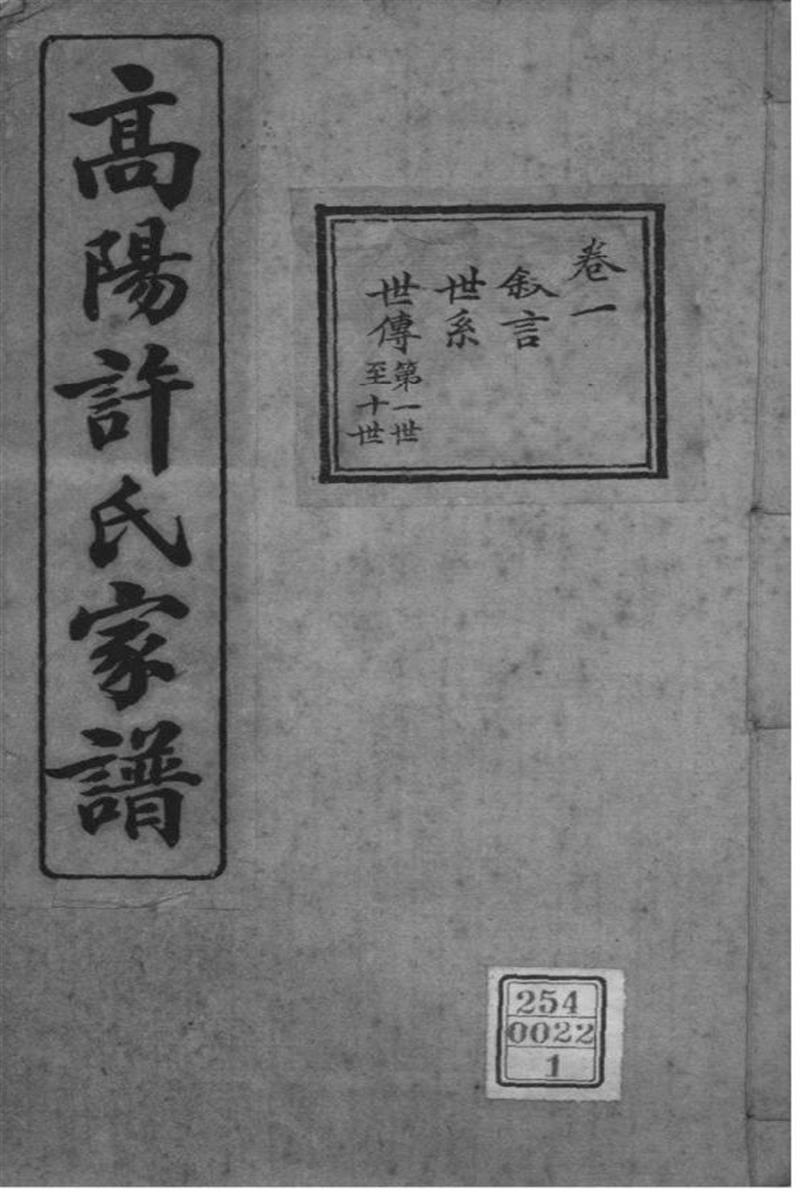 高陽許氏家譜
卷一
敘言
世系
世傳
第一世
至十世
254
0022
1